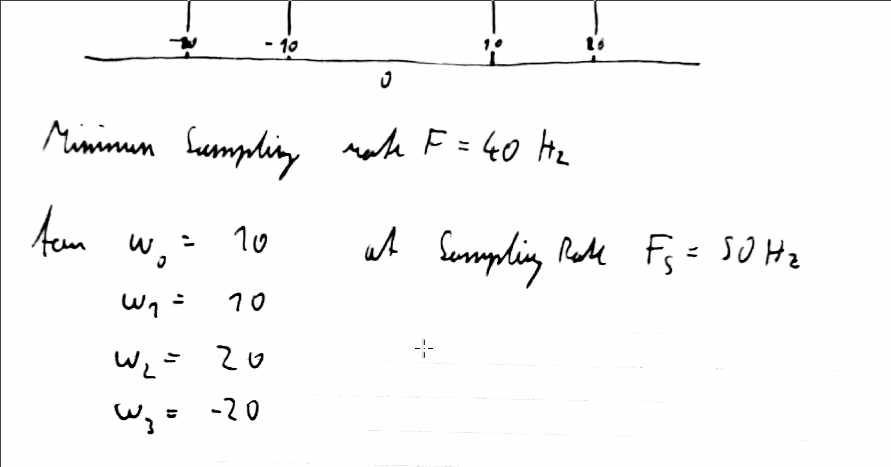 -20 -10 10 20
0
Minimum Sampling rate F = 40 Hz
w₀ = 10 at Sampling Rate Fₛ = 50 Hz
w₁ = 10
w₂ = 20
w₃ = -20